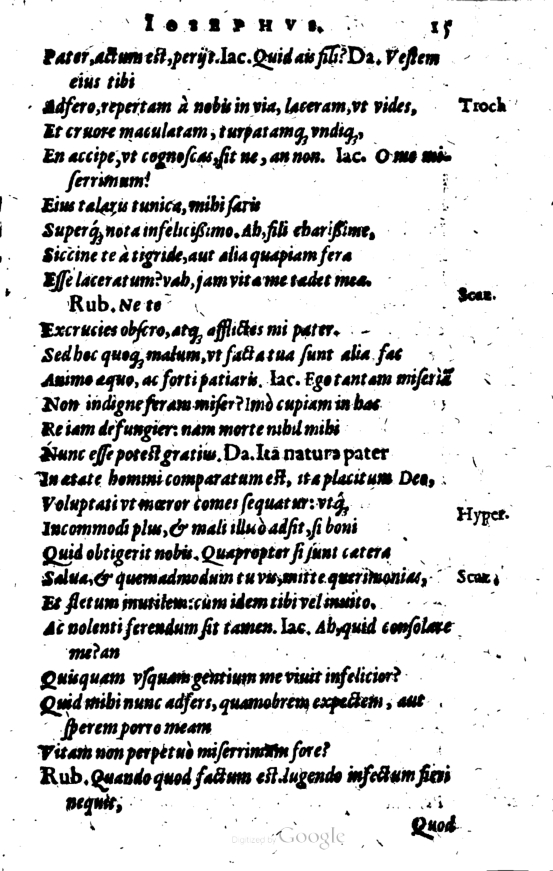 IOSEPHVS. 15
Pater, actum est, perijt. Iac. Quid ais fili? Da. Vestem
eius tibi
Adfero, repertam à nobis in via, laceram, vt vides, Troch
Et cruore maculatam, turpatamq́; vndiq́;,
En accipe, vt cognoscas, sit ne, an non. Iac. O me mi-
serrimum!
Eius talaris tunica, mihi satis
Superq́; nota infelicißimo. Ah, fili charißime,
Siccine te à tigride, aut alia quapiam fera
Esse laceratum? vah, jam vitæ me tædet meæ.
Rub. Ne te Scaz.
Excrucies obsecro, atq́; afflictes mi pater.
Sed hoc quoq́; malum, vt facta tua sunt alia fac
Animo æquo, ac forti patiaris. Iac. Ego tantam miseriã
Non indigne feram miser? Imò cupiam in hac
Re iam defungier: nam morte nihil mihi
Nunc esse potest gratius. Da. Itã natura pater
In ætate homini comparatum est, ita placitum Deo,
Voluptati vt mœror comes sequatur: vtq́; Hyper.
Incommodi plus, & mali illuò adsit, si boni
Quid obtigerit nobis. Quapropter si sunt cætera
Salua, & quemadmodum tu vis, mitte querimonias, Scaz.
Et fletum inutilem: cùm idem tibi vel inuito.
Ac nolenti ferendum sit tamen. Iac. Ah, quid consolare
me? an
Quisquam vsquam gentium me viuit infelicior?
Quid mihi nunc adfers, quamobrem expectem, aut
sperem porro meam
Vitam non perpetuò miserrimam fore?
Rub. Quando quod factum est lugendo infectum fieri
nequit,
Quod
Digitized by Google